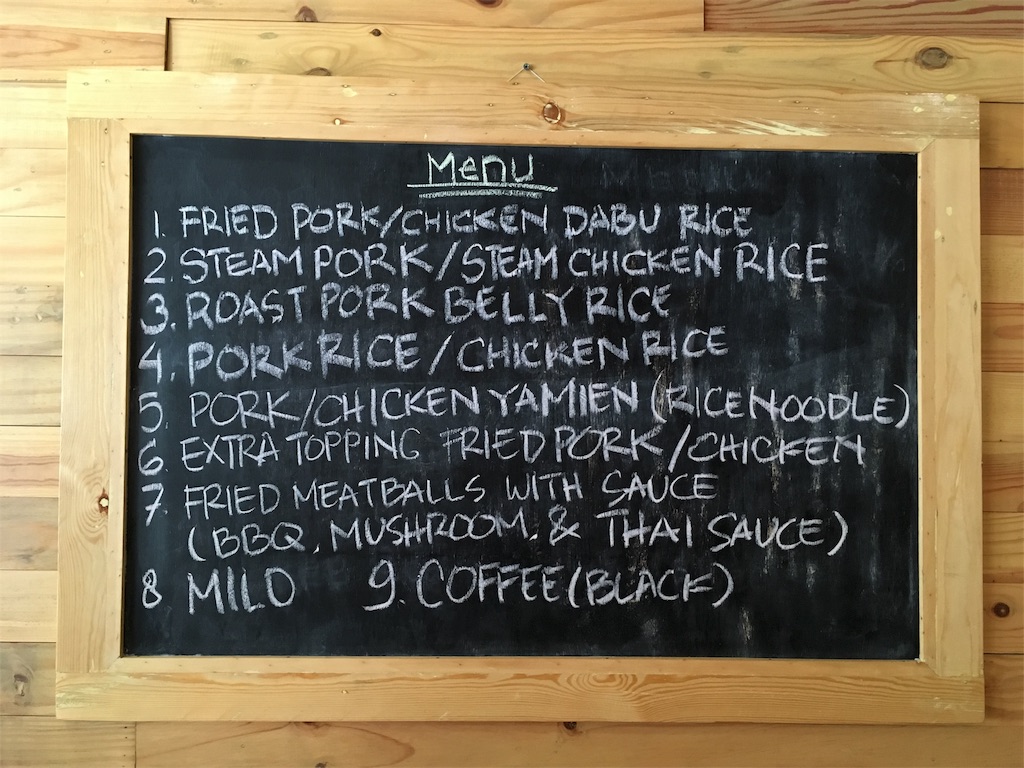 Menu
1. FRIED PORK/CHICKEN DABU RICE
2. STEAM PORK/STEAM CHICKEN RICE
3. ROAST PORK BELLY RICE
4. PORK RICE / CHICKEN RICE
5. PORK/CHICKEN YAMIEN (RICE NOODLE)
6. EXTRA TOPPING FRIED PORK/CHICKEN
7. FRIED MEATBALLS WITH SAUCE
(BBQ, MUSHROOM, & THAI SAUCE)
8 MILO 9. COFFEE (BLACK)